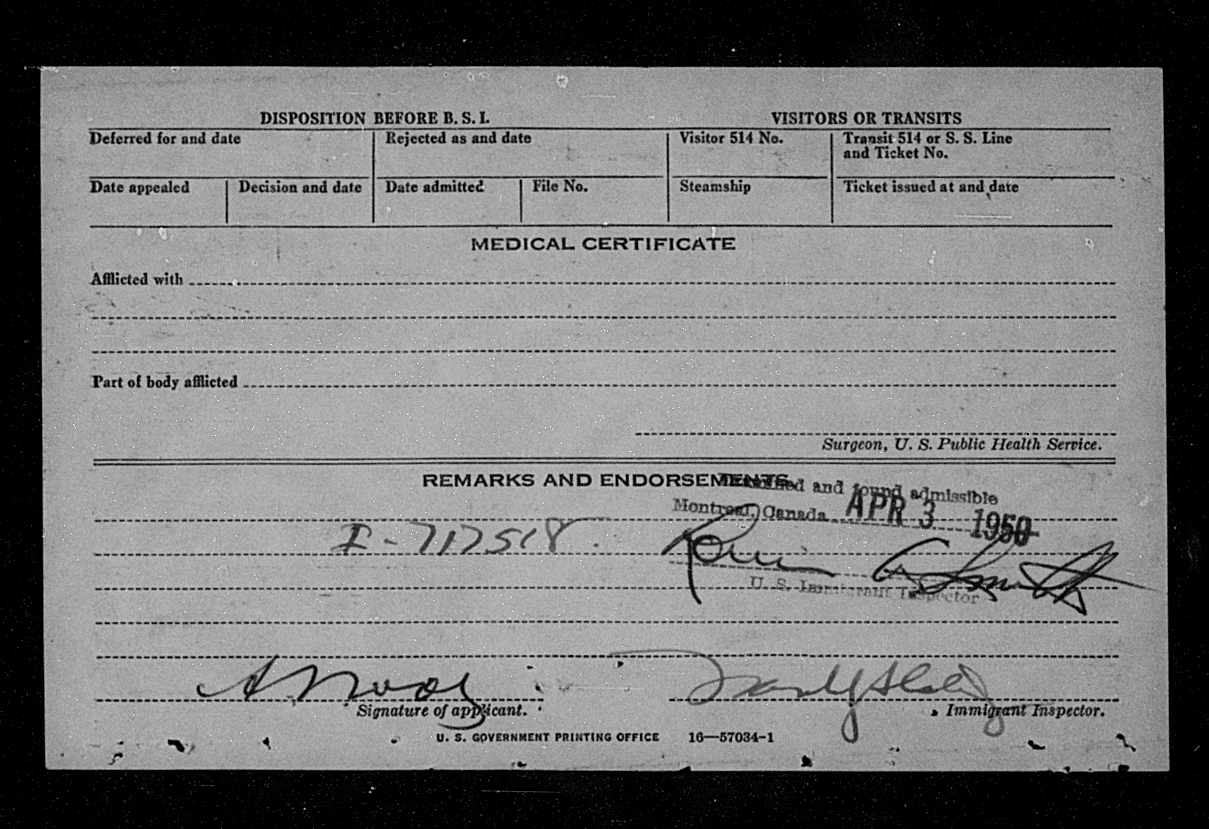 DISPOSITION BEFORE B. S. I. VISITORS OR TRANSITS
Deferred for and date Rejected as and date Visitor 514 No. Transit 514 or S. S. Line
and Ticket No.
Date appealed Decision and date Date admitted File No. Steamship Ticket issued at and date
MEDICAL CERTIFICATE
Afflicted with
Part of body afflicted
Surgeon, U. S. Public Health Service.
REMARKS AND ENDORSEMENTS
and found admissible
Montreal, Canada APR 3 1950
I-717518.
U. S. Immigrant Inspector
Signature of applicant. Immigrant Inspector.
U. S. GOVERNMENT PRINTING OFFICE 16—57034-1